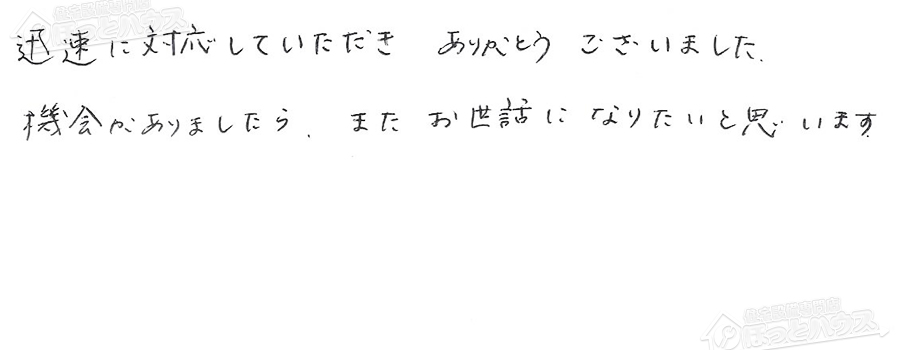 迅速に対応していただき ありがとう ございました.
機会がありましたら. また お世話に なりたいと思います.
ほっとハウス